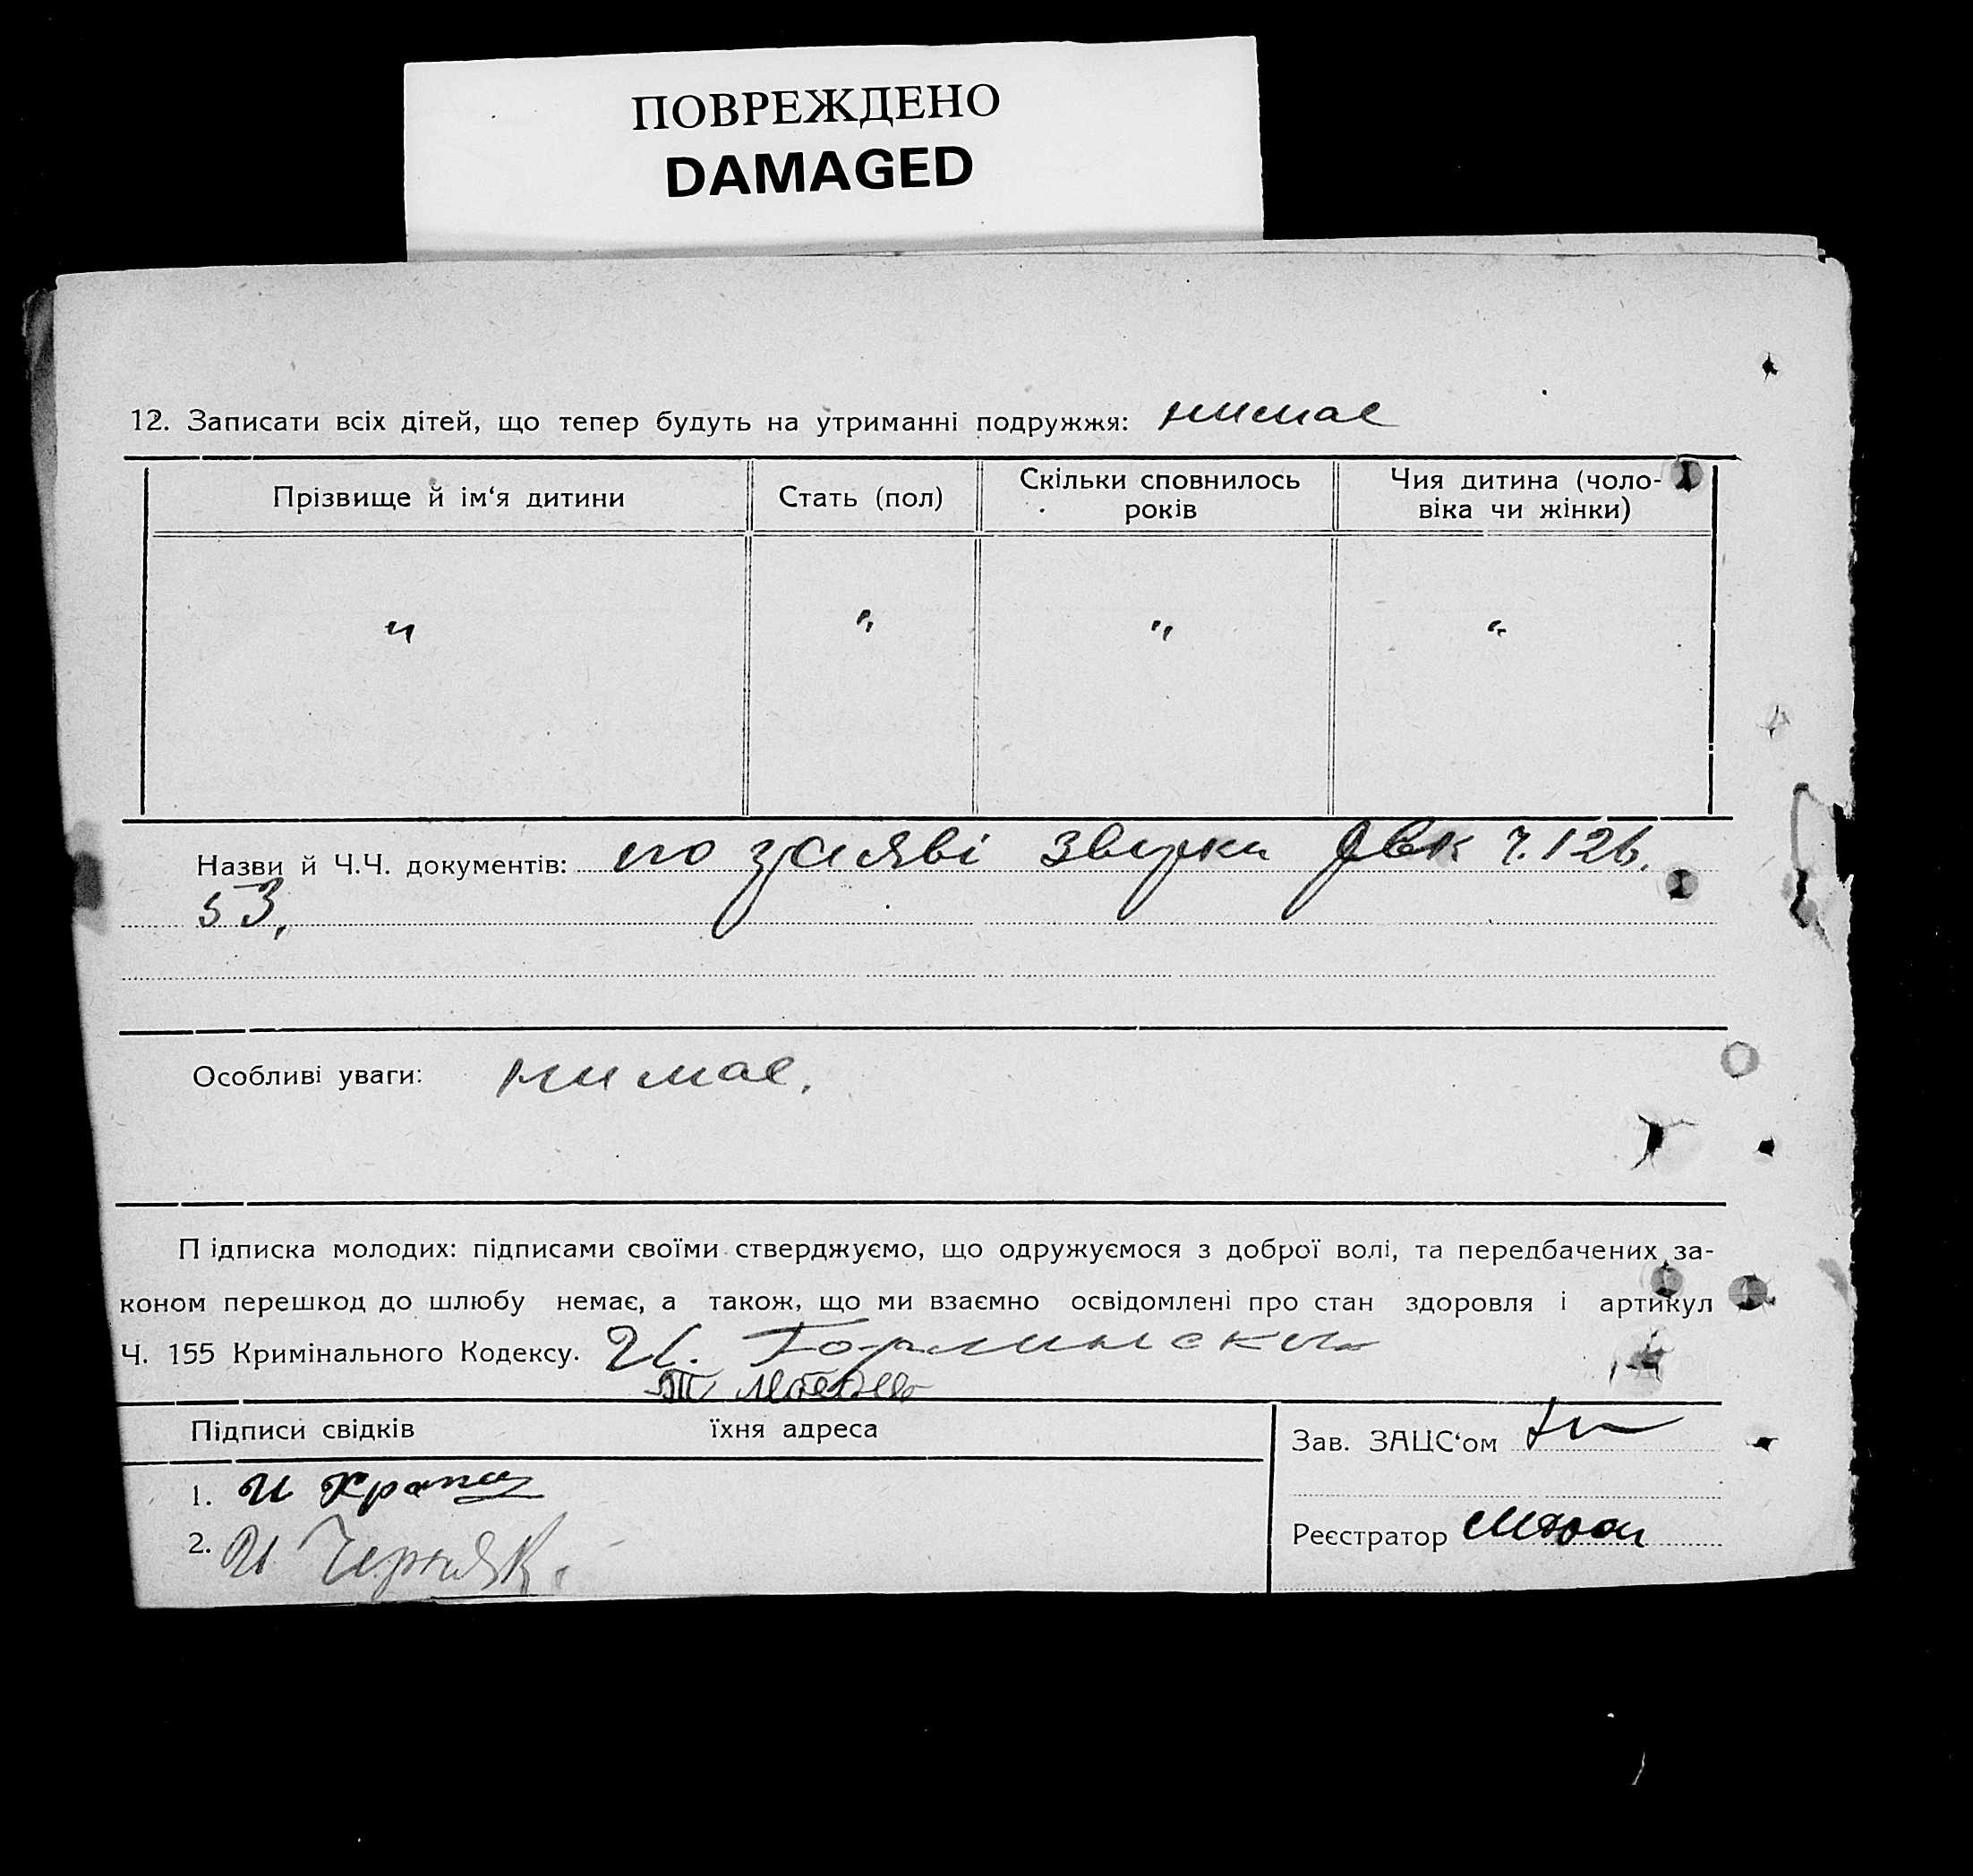 ПОВРЕЖДЕНО
DAMAGED
12. Записати всіх дітей, що тепер будуть на утриманні подружжя: нимає
Прізвище й ім‘я дитини
Стать (пол)
Скільки сповнилось
років
Чия дитина (чоло-
віка чи жінки)
" " " "
Назви й Ч.Ч. документів: по заяві двк ч. 126.
53,
Особливі уваги: нимає.
Підписка молодих: підписами своїми стверджуємо, що одружуємося з доброї волі, та передбачених за-
коном перешкод до шлюбу немає, а також, що ми взаємно освідомлені про стан здоровля і артикул
Ч. 155 Кримінального Кодексу. И.
Підписи свідків їхня адреса
Зав. ЗАЦС‘ом
1. И
2. И Черняк.
Реєстратор